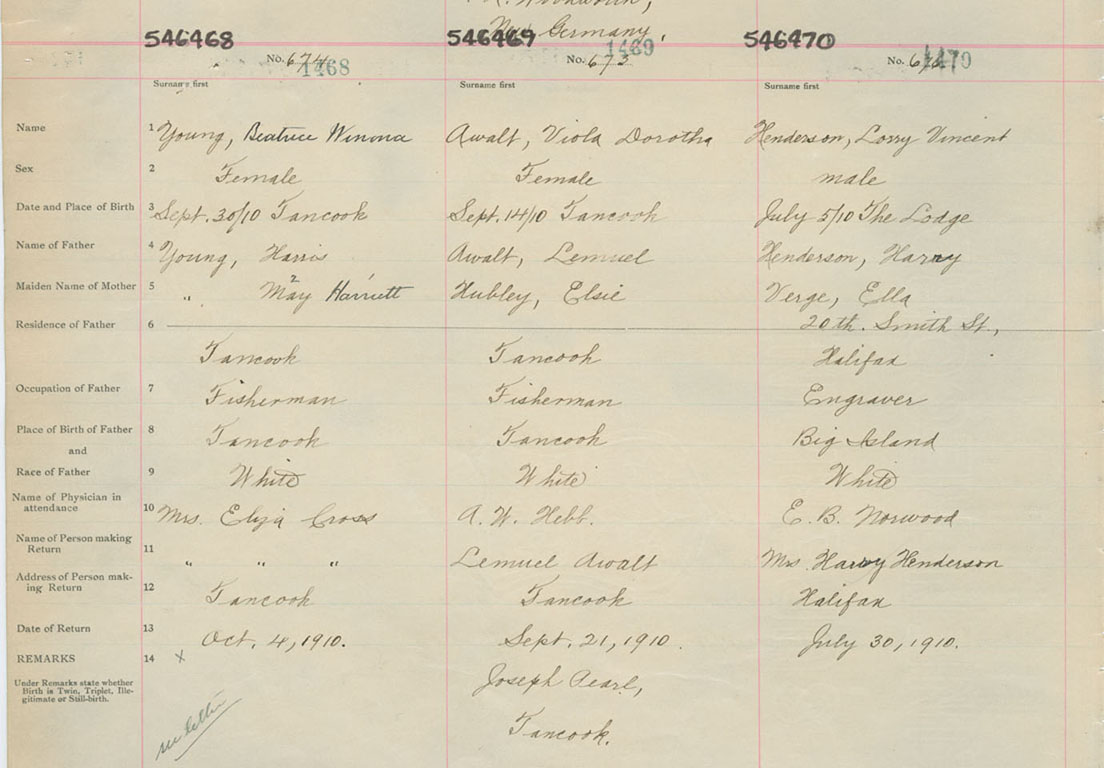 New Germany,
546468 546469 546470
No. 674 1468 No. 673 1469 No.
Surname first Surname first Surname first
Name 1 Young, Beatrice Winona Awalt, Viola Dorotha Henderson, Lorry Vincent
Sex 2 Female Female male
Date and Place of Birth 3 Sept. 30/10 Tancook Sept. 14/10 Tancook July 5/10 The Lodge
Name of Father 4 Young, Harris Awalt, Lemuel Henderson, Harry
Maiden Name of Mother 5 " May Harriett Hubley, Elsie Verge, Ella
Residence of Father 6 20th. Smith St.,
Tancook Tancook Halifax
Occupation of Father 7 Fisherman Fisherman Engraver
Place of Birth of Father 8 Tancook Tancook Big Island
and
Race of Father 9 White White White
Name of Physician in
attendance 10 Mrs. Eliza Cross A. W. Hebb. E. B. Norwood
Name of Person making
Return 11 " " " Lemuel Awalt Mrs. Harry Henderson
Address of Person mak-
ing Return 12 Tancook Tancook Halifax
Date of Return 13 Oct. 4, 1910. Sept. 21, 1910. July 30, 1910.
REMARKS 14 x
Under Remarks state whether
Birth is Twin, Triplet, Ille-
gitimate or Still-birth.
Joseph Pearl,
Tancook.
see letter